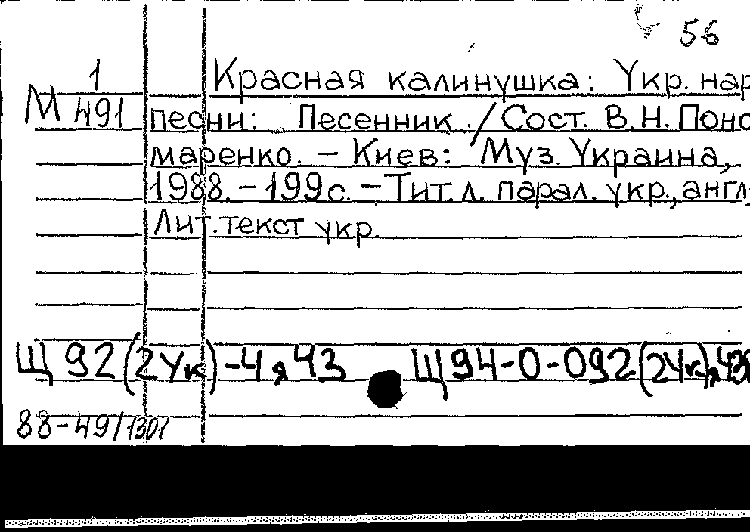 56
1 Красная калинушка: Укр. нар
М 491 песни: Песенник. / Сост. В.Н. Поно
маренко. – Киев: Муз. Украина,
1988. – 199 с. – Тит. л. парал. укр., англ.
Лит. текст укр.
Щ92(2Ук)-4я43 Щ94-0-092(2Ук)я43
88-49/1307